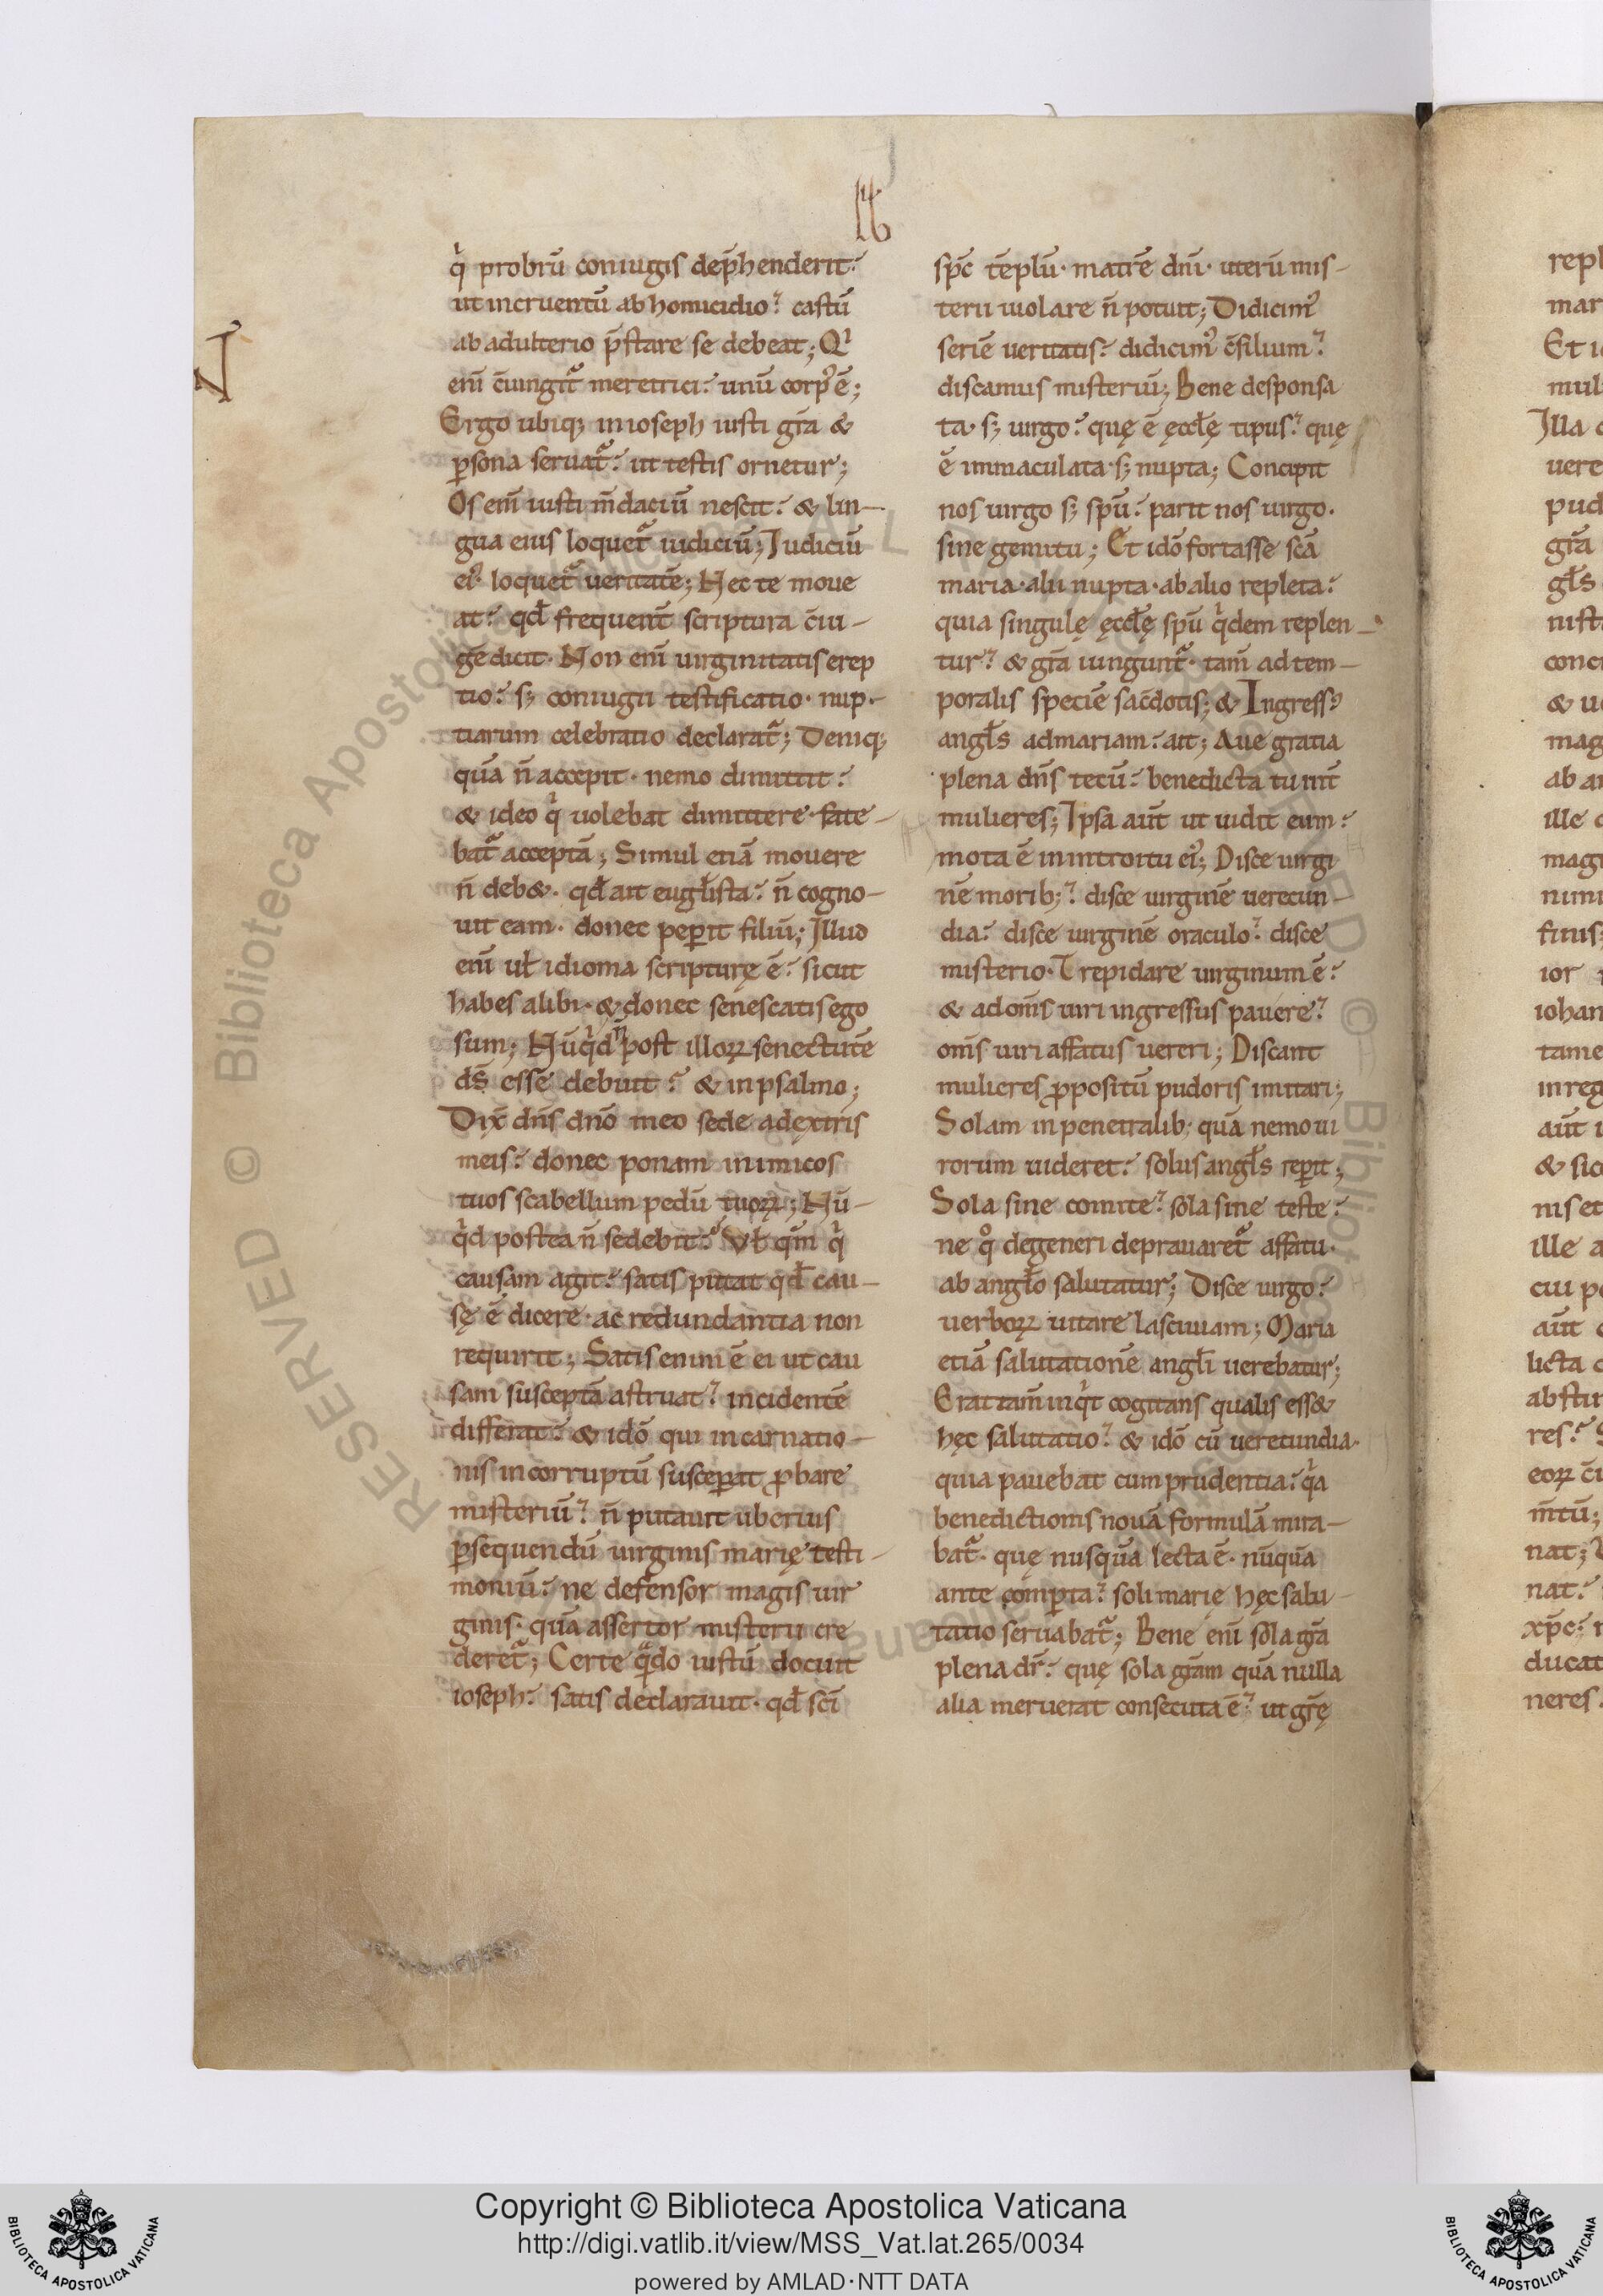 q̍ probrū coniugis dep̄henderit?
ut incruentū ab homicidio? castū
ab adulterio p̄stare se debeat; Qͥ
eni̅ c̄iungit᷑ meretrici? unū corpꝰ ē;
Ergo ubiq; in ioseph iusti gr̄a &
ꝑsona seruat᷑? ut testis ornetur;
Os eni̅ iusti m̄daciū nescit? & lin-
gua eius loquet᷑ iudiciū; Iudiciū
eiꝰ loquet᷑ ueritatē; Nec te moue
at? qđ frequent̄ scriptura c̄iu-
gē dicit· Non eni̅ uirginitatis erep
tio? sꝫ coniugii testificatio· nup-
tiarum celebratio declarat᷑; Deniq;
quā n̄ accepit· nemo dimittit?
& ideo q̍ uolebat dimittere· fate-
bat᷑ acceptā; Simul etiā mouere
n̄ deb&· qđ ait eugl̄ista? n̄ cogno-
uit eam· donec peꝑit filiū; Illud
eni̅ ul̄ idioma scripturę ē? sicut
habes alibi· & donec senescatis ego
sum; Nūq̍d n̄ post illoꝝ senectutē
ds̄ esse debuit? & in psalmo;
Dix̄ dn̄s dn̄o meo sede a dęxtris
meis? donec ponam inimicos
tuos scabellum pedū tuoꝝ; Nū-
q̍d postea n̄ sedebit? Vl̄ qm̄ q̍
causam agit? satis putat qđ cau-
sę ē dicere· ac redundantia non
requirit; Satis enim ē ei ut cau
sam susceptā astruat? incidentē
differat? & idō qui incarnatio-
nis incorruptū susceꝑat ꝓbare
misteriū? n̄ putauit uberius
ꝑsequendū uirginis marię testi-
moniū? ne defensor magis uir
ginis· quā assertor misterii cre
deret᷑; Certe qᷓdo iustū docuit
ioseph? satis declarauit· qđ sc̄i
sp̄c tēplū· matrē dn̄i· uterū mis-
terii uiolare n̄ potuit; Didicimꝰ
seriē ueritatis? didicimꝰ c̄silium?
discamus misteriū; Bene desponsa
ta· sꝫ uirgo? quę ē ęccl̄ę tipus? quę
ē immaculata· sꝫ nupta; Concipit
nos uirgo sꝫ sp̄u? parit nos uirgo·
sine gemitu; Et idō fortasse sc̄a
maria· alii nupta· ab alio repleta?
quia singulę ęccl̄ę sp̄u q̍dem replen-
tur? & gr̄a iungunt᷑· tam̄ ad tem-
poralis speciē sac̄dotis; & Ingressꝰ
angl̄s ad mariam? ait; Aue gratia
plena dn̄s tecū? benedicta tu int̄
mulieres; Ipsa aūt ut uidit eum?
mota ē in introitu eiꝰ; Disce uirgi
nē morib;? disce uirginē uerecun-
dia? disce uirginē oraculo? disce
misterio· Trepidare uirginum ē?
& ad om̄s uiri ingressus pauere?
om̄s uiri affatus uereri; Discant
mulieres ꝓpositū pudoris imitari;
Solam in penetralib; quā nemo ui
rorum uideret? solus angl̄s reꝑit;
Sola sine comite? sola sine teste?
ne qͦ degeneri deprauaret᷑ affatu·
ab angl̄o salutatur; Disce uirgo?
uerboꝝ uitare lasciuiam; Maria
etiā salutationē angl̄i uerebatur;
Erat tam̄ inq̍t cogitans qualis ess&
hęc salutatio? & idō cū uerecundia·
quia pauebat cum prudentia? q̍a
benedictionis nouā formulā mira-
bat᷑· quę nusquā lecta ē· nūquā
ante comꝑta? soli marię hęc salu-
tatio seruabat᷑; Bene eni̅ sola gr̄a
plena dr̄? quę sola gr̄am quā nulla
alia meruerat consecuta ē? ut gr̄ę
Copyright © Biblioteca Apostolica Vaticana
http://digi.vatlib.it/view/MSS_Vat.lat.265/0034
powered by AMLAD·NTT DATA